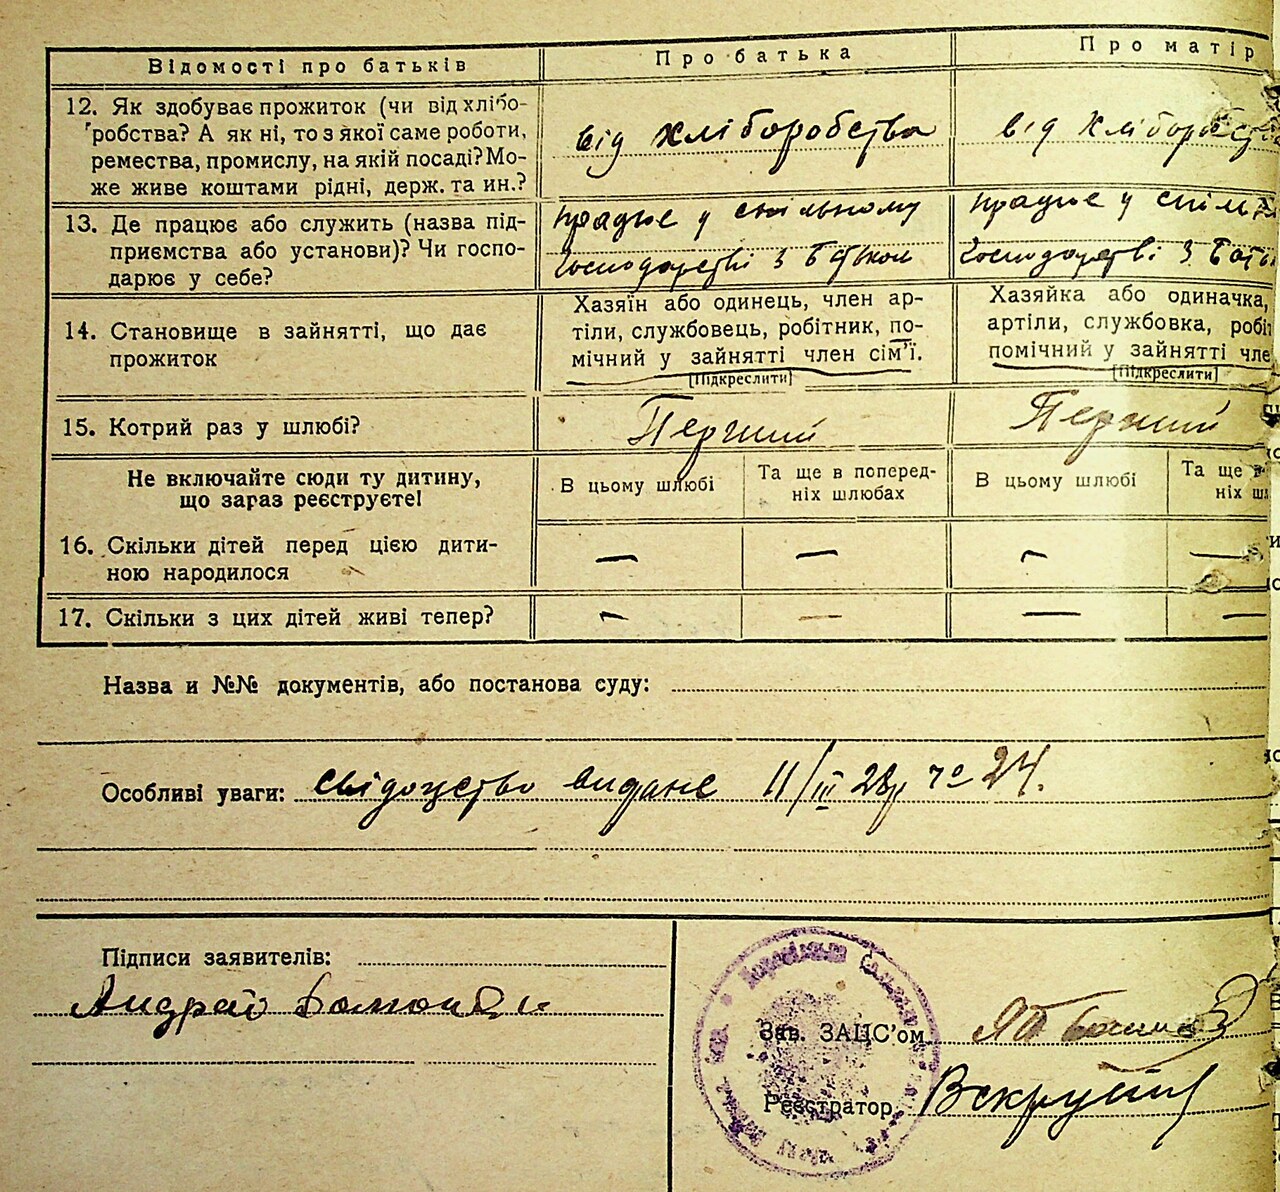 Відомості про батьків
Про батька
Про матір
12. Як здобуває прожиток (чи від хлібо-
робства? А як ні, то з якої саме роботи,
ремества, промислу, на якій посаді? Мо-
же живе коштами рідні, держ. та ин.?
від хліборобства
від хліборобст
13. Де працює або служить (назва під-
приємства або установи)? Чи госпо-
дарює у себе?
працює у спільному
господарстві з батьком
працює у спіль
господарстві з бать
14. Становище в зайнятті, що дає
прожиток
Хазяїн або одинець, член ар-
тіли, службовець, робітник, по-
мічний у зайнятті член сім'ї.
[Підкреслити]
Хазяйка або одиначка,
артіли, службовка, робіт
помічний у зайнятті чле
[Підкреслити]
15. Котрий раз у шлюбі?
Перший
Перший
Не включайте сюди ту дитину,
що зараз реєструєте!
В цьому шлюбі
Та ще в поперед-
ніх шлюбах
В цьому шлюбі
Та ще в
ніх шл
16. Скільки дітей перед цією дити-
ною народилося
— — — —
17. Скільки з цих дітей живі тепер?
— — — —
Назва и №№ документів, або постанова суду:
Особливі уваги: свідоцтво видане 11/III 28р чо 24.
Підписи заявителів:
Андрей
Зав. ЗАЦС'ом
Реєстратор